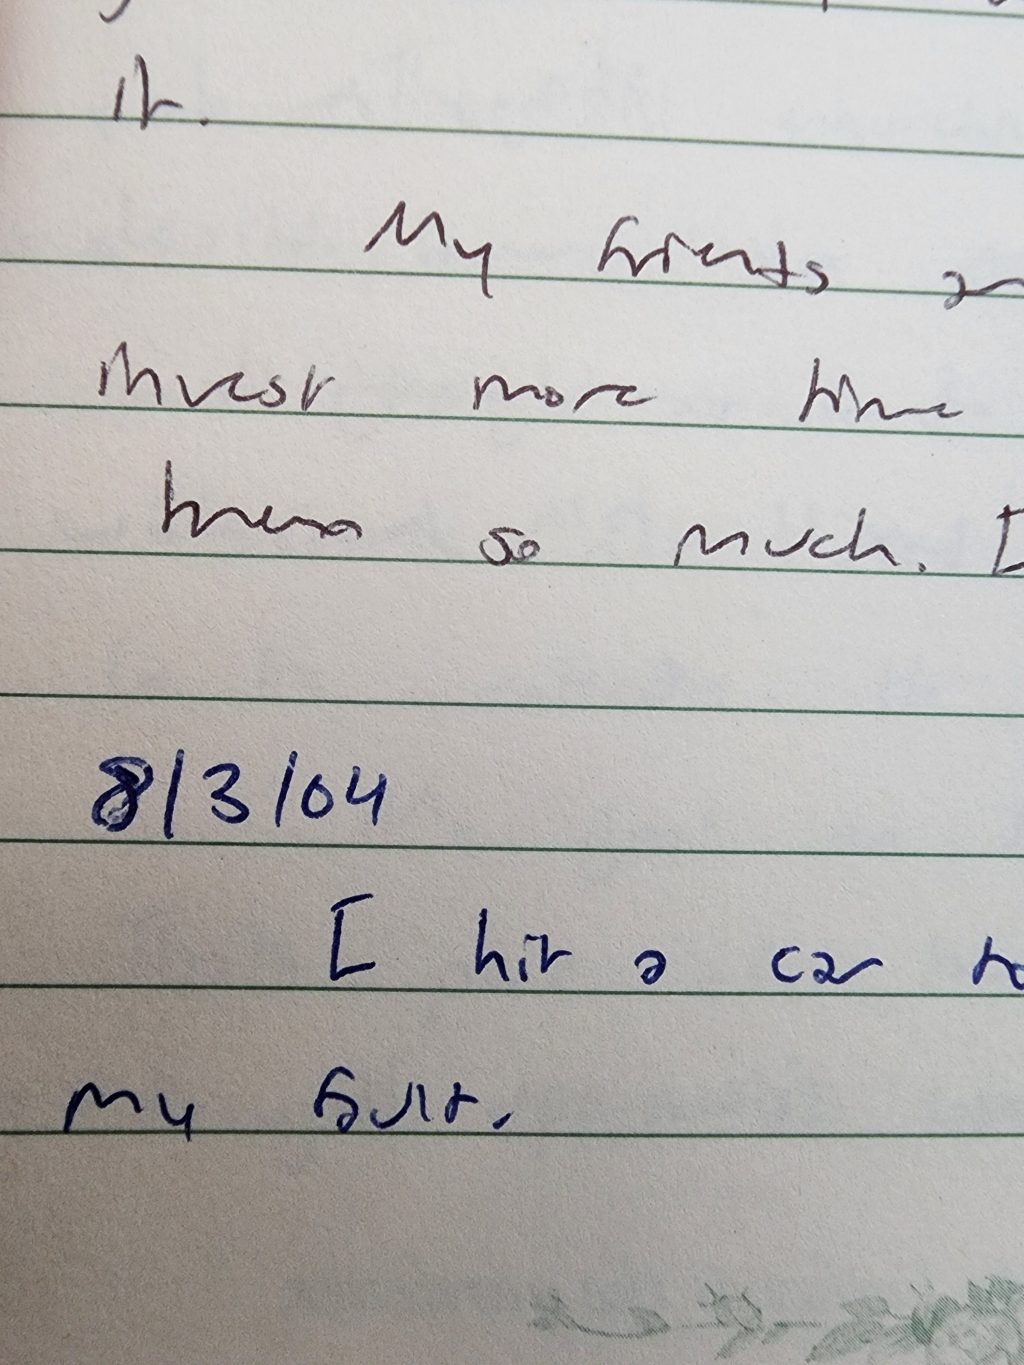 it.
My friends
invest more time
them so much. I
8/3/04
I hit a car
my fault.